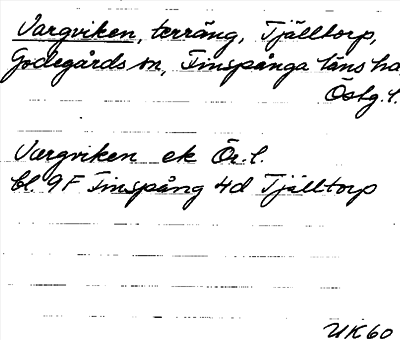 Vargviken, terräng, Tjälltorp,
Godegårds sn, Finspånga läns hd,
Östg. l.
Vargviken ek Ör. l.
bl. 9F Finspång 4d Tjälltorp
UK60